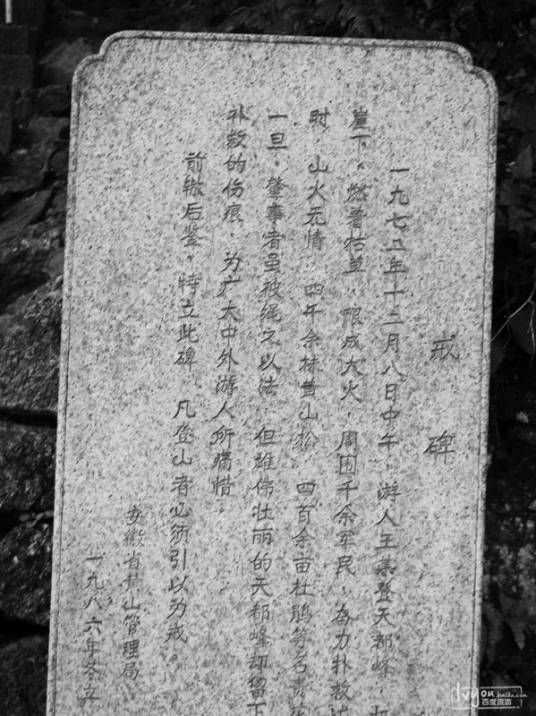 戒碑
一九七二年十二月八日中午，游人王某登天都峰
崖下，燃着枯草，酿成大火，周围千余军民，奋力扑救
时，山火无情，四千余株黄山松，四百余亩杜鹃等名贵
一旦，肇事者虽被绳之以法，但雄伟壮丽的天都峰却留下
补救的伤痕，为广大中外游人所痛惜。
前辙后鉴，特立此碑，凡登山者必须引以为戒。
安徽省黄山管理局
一九八六年冬立
lvyou.baidu.com
百度旅游